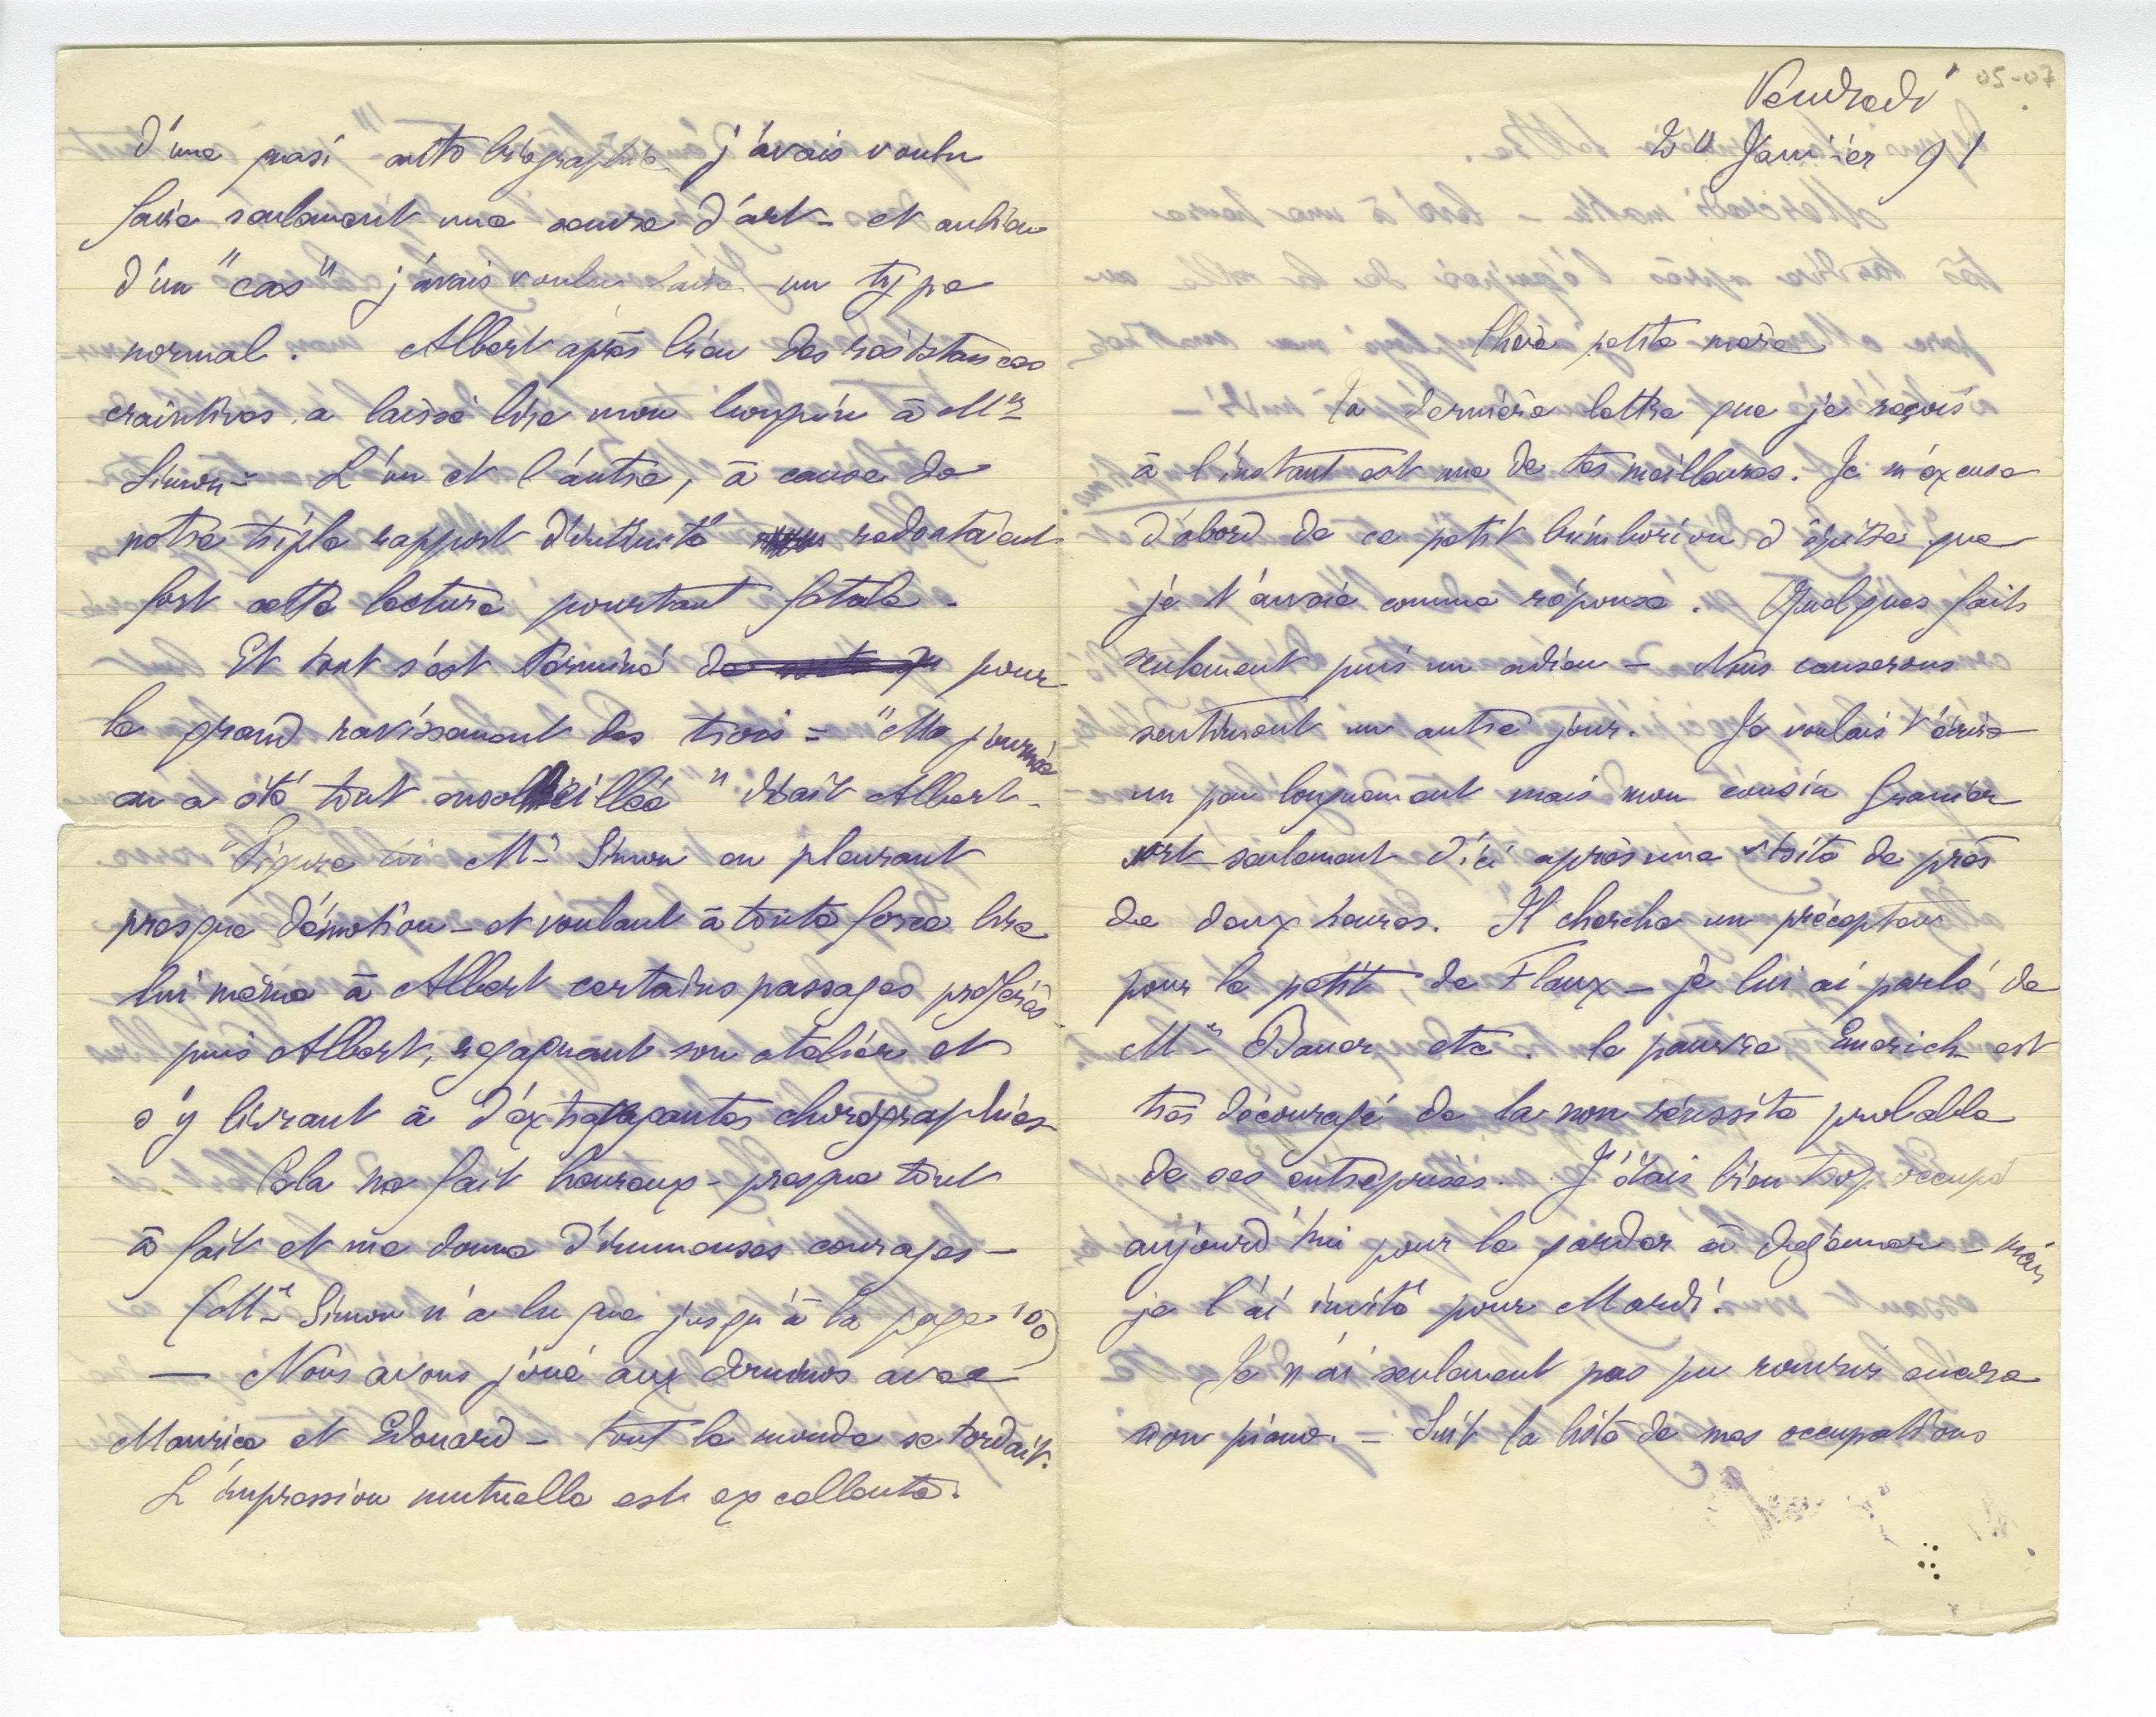 05-07
Vendredi
Janvier 91
Chère petite mère
Ta dernière lettre que je reçois
à l'instant est une de tes meilleures. Je m'excuse
d'abord de ce petit bimborion d'épitre que
je t'envoie comme réponse. Quelques faits
seulement puis un adieu – Nous causerons
sentiment un autre jour. Je voulais t'écrire
un peu longuement mais mon cousin Granier
sort seulement d'ici après une visite de près
de deux heures. Il cherche un précepteur
pour le petit de Flaux – je lui ai parlé de
Mr Bauer etc. le pauvre Emerich est
très découragé de la non réussite probable
de ses entreprises. J'étais bien trop occupé
aujourd'hui pour le garder à déjeuner – mais
je l'ai invité pour Mardi.
Je n'ai seulement pas pu rouvrir encore
mon piano. – Suit la liste de mes occupations
d'une quasi auto biographie j'avais voulu
faire seulement une oeuvre d'art – et au lieu
d'un "cas" j'avais voulu faire un type
normal. Albert après bien des résistances
craintives a laissé lire mon bouquin à Mr
Simon – L'un et l'autre, à cause de
notre triple rapport d'intimité redoutaient
fort cette lecture pourtant fatale –
Et tout s'est terminé de pour
le grand ravissement des trois = "Ma journée
en a été tout ensoleillée" disait Albert –
Figure toi Mr Simon en pleurant
presque d'émotion – et voulant à toute force lire
lui même à Albert certains passages préférés –
puis Albert, regagnant son atelier et
s'y livrant à d'extravagantes chorégraphies –
Cela me fait heureux – presque tout
à fait et me donne d'immenses courages –
(Mr Simon n'a lu que jusqu'à la page 100)
— Nous avons joué aux dominos avec
Maurice et Edouard – tout le monde se tordait.
L'impression mutuelle est excellente.